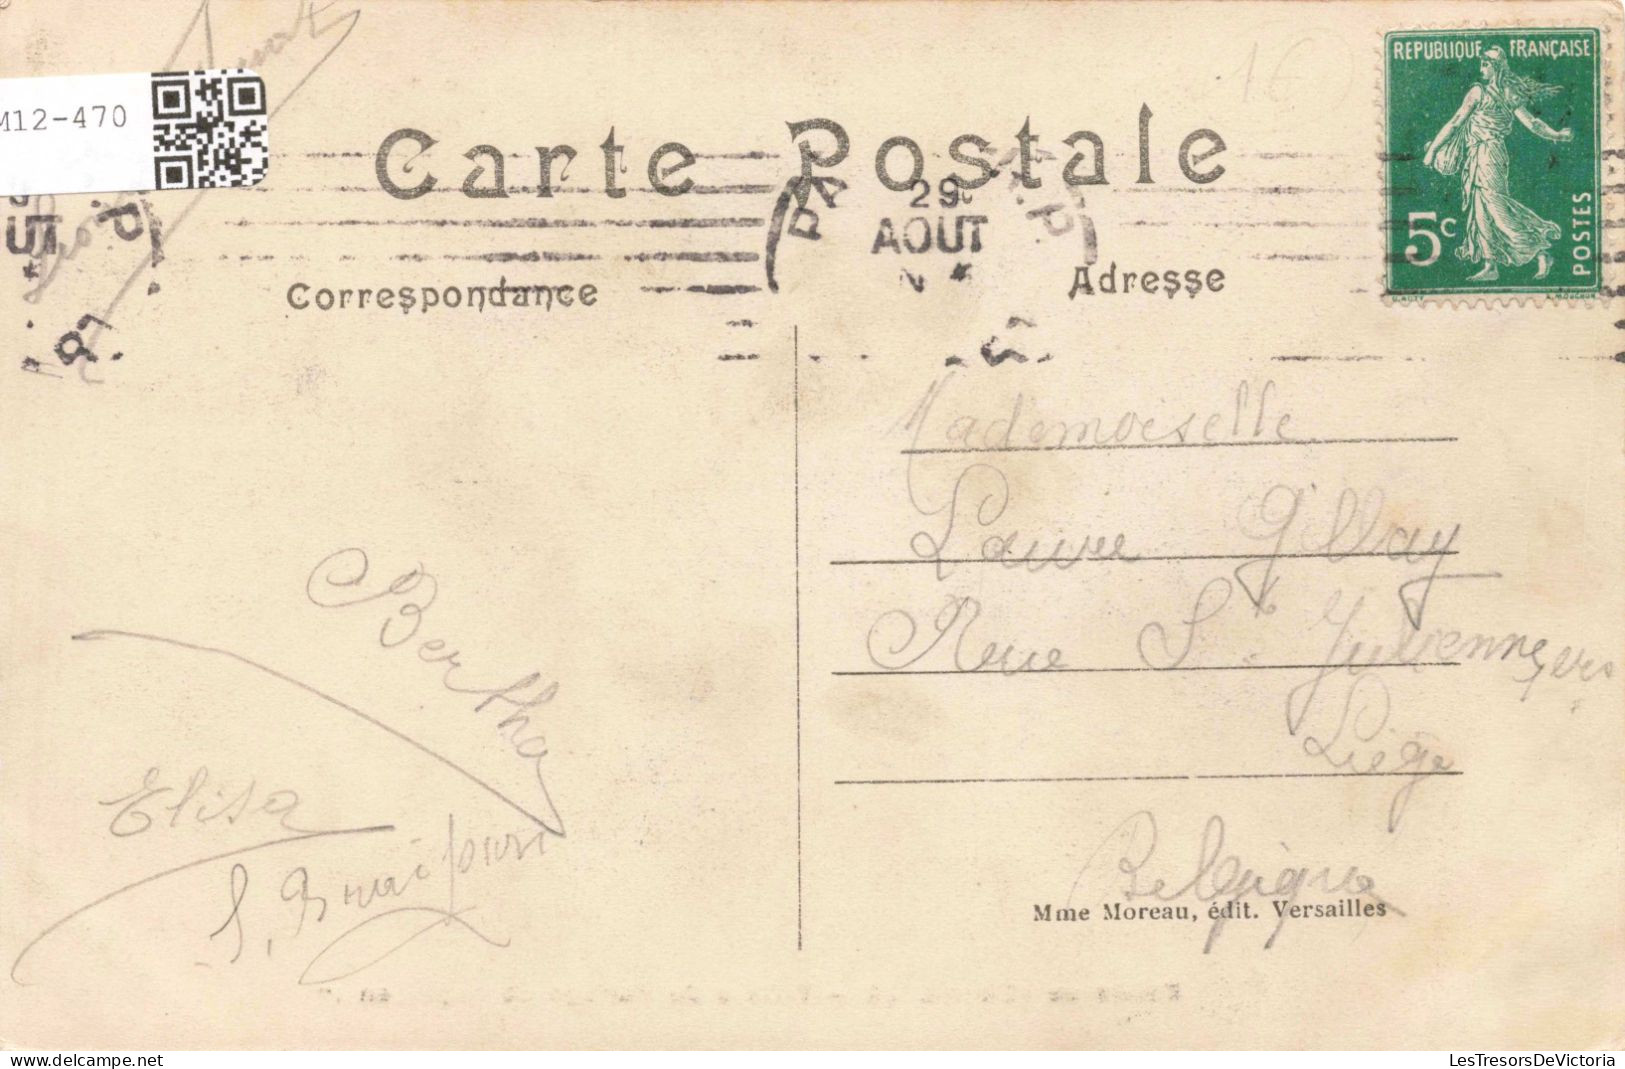 M12-470
Carte Postale
29
AOUT
Correspondance
Adresse
REPUBLIQUE FRANÇAISE
5c
POSTES
Mademoiselle
Laure Gillay
Rue St
Liège
Belgique
Bertha
Elisa
Mme Moreau, édit. Versailles
LesTresorsDeVictoria
https://www.delcampe.net